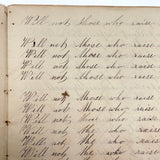 Will not, those who raise
Will not, those who raise
Will not, those who raise
Will not, those who raise
Will not, those who raise
Will not, those who raise
Will not, those who raise
Will not, those who raise
Will not, the who raise
Will not, the who raise
Will not, who raise